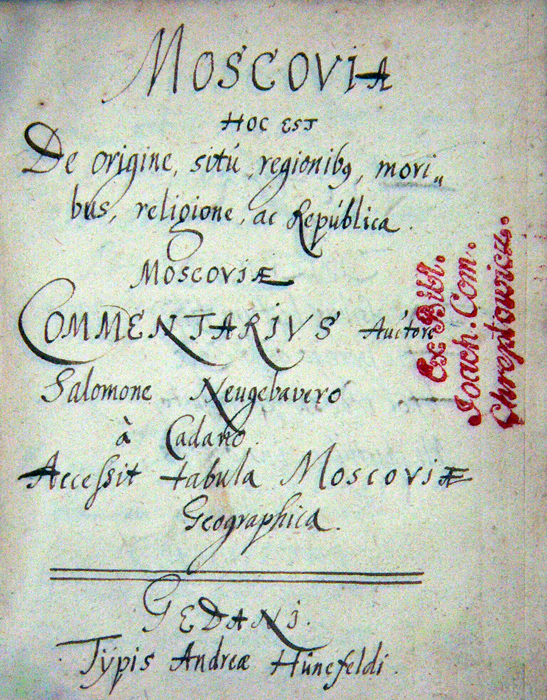 MOSCOVIA
HOC EST
De origine, sitú, regionibꝫ, mori„
bus, religione, ac República.
MOSCOVIÆ
COMMENTARIVS Auctore
Salomone Neugebavero
à Cadano.
Accessit tabula MOSCOVIÆ
Geographica.
GEDANI.
Typis Andreæ Hünefeldi.
Ex Bibl.
Ioach. Com.
Chreptowicz.